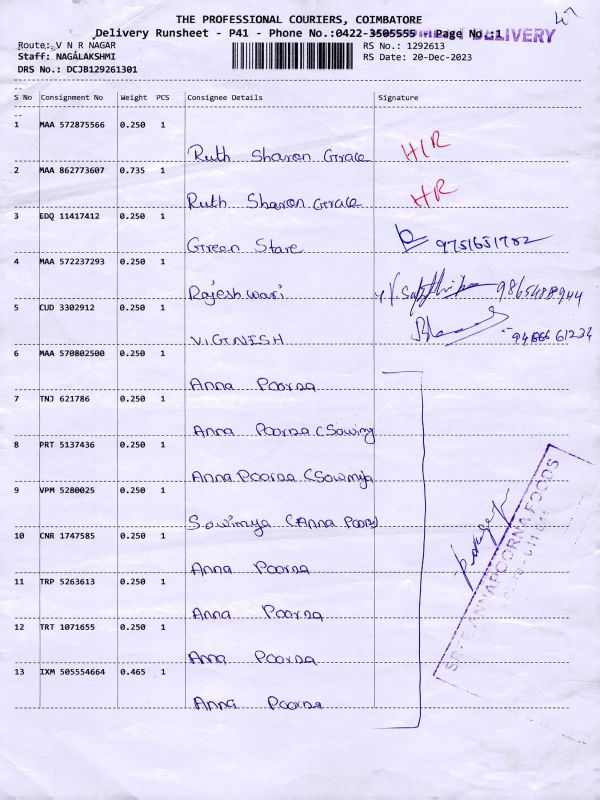 THE PROFESSIONAL COURIERS, COIMBATORE
Delivery Runsheet - P41 - Phone No.:0422-3505555 Page No.:1
DELIVERY
Route: V N R NAGAR
RS No.: 1292613
Staff: NAGALAKSHMI
RS Date: 20-Dec-2023
DRS No.: DCJB129261301
S No Consignment No Weight PCS Consignee Details Signature
1 MAA 572875566 0.250 1
Ruth Sharon Grace HR
2 MAA 862773607 0.735 1
Ruth Sharon Grace HR
3 EDQ 11417412 0.250 1
Green Stare 9751651782
4 MAA 572237293 0.250 1
Rajeshwari 9865488944
5 CUD 3302912 0.250 1
VIGNISH
6 MAA 570802500 0.250 1
Anna Poorna
7 TNJ 621786 0.250 1
Anna Poorna (Sowmy
8 PRT 5137436 0.250 1
Anna Poorna (Sowmija
9 VPM 5280025 0.250 1
Sowimya (Anna Poorn)
10 CNR 1747585 0.250 1
Anna Poorna
11 TRP 5263613 0.250 1
Anna Poorna
12 TRT 1071655 0.250 1
Anna Poorna
13 IXM 505554664 0.465 1
Anna Poorna
SREE ANNAPOORNA FOODS